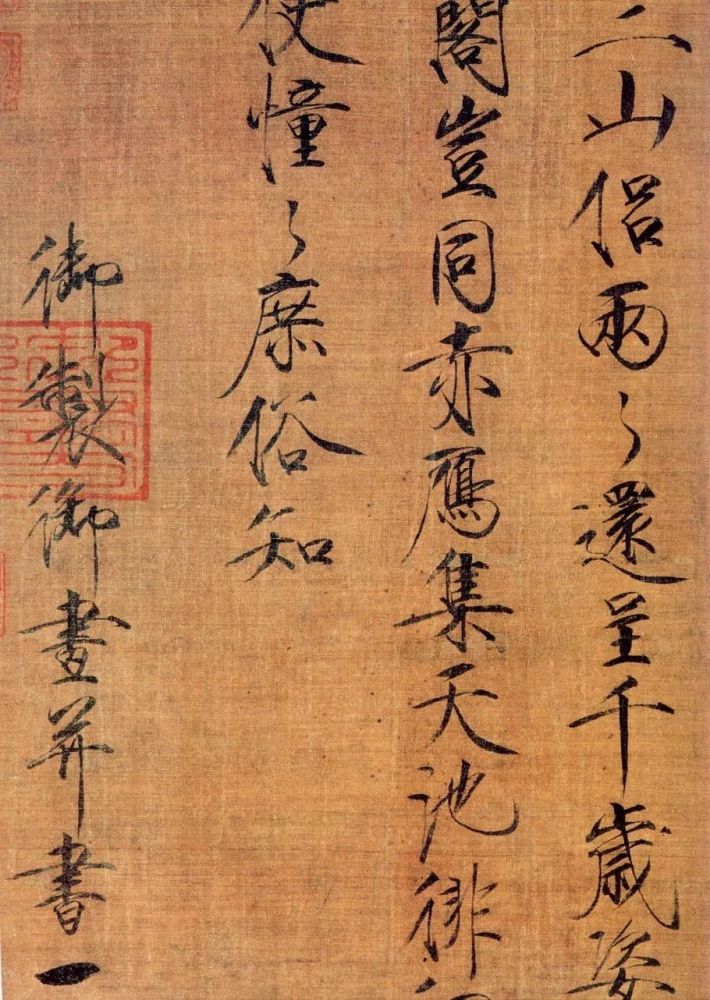 三山侶兩〻還呈千歲姿
閣豈同赤鴈集天池徘
使憧〻庶俗知
御製御畫并書